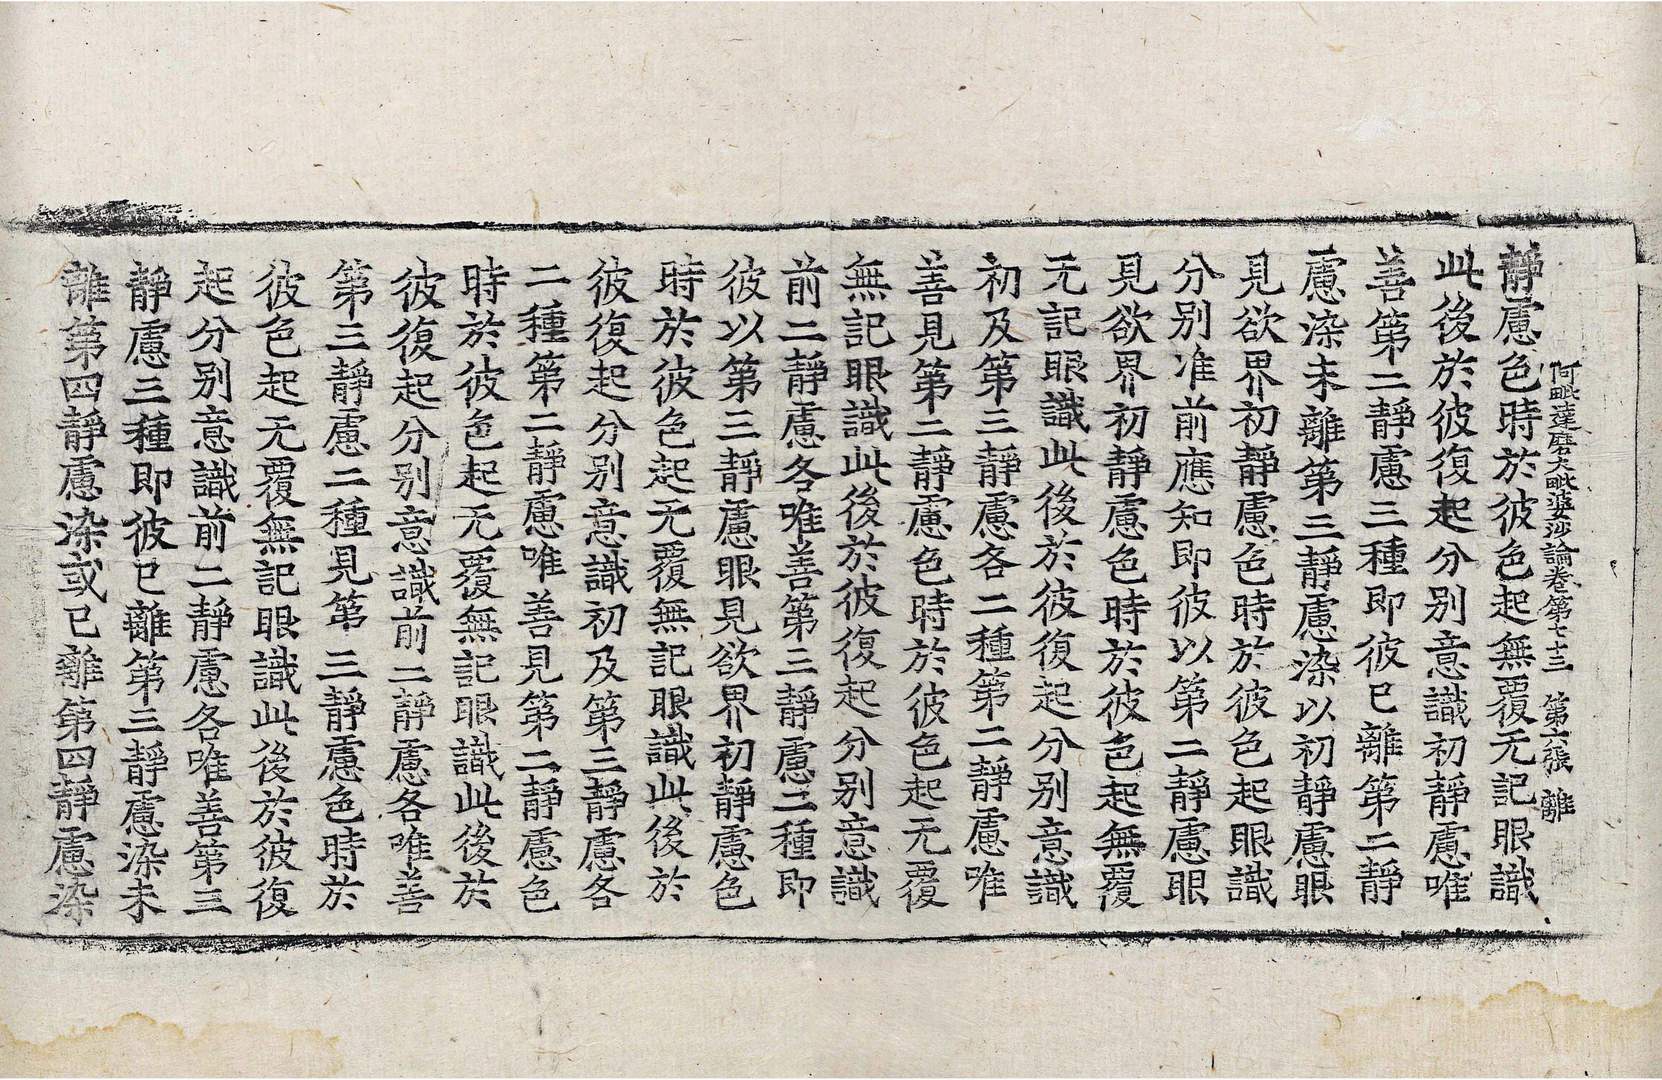 阿毗達磨大毗婆沙論卷第七十三 第六張 離
靜慮色時於彼色起無覆无記眼識
此後於彼復起分別意識初靜慮唯
善第二靜慮三種即彼已離第二靜
慮染未離第三靜慮染以初靜慮眼
見欲界初靜慮色時於彼色起眼識
分別准前應知即彼以第二靜慮眼
見欲界初靜慮色時於彼色起無覆
无記眼識此後於彼復起分別意識
初及第三靜慮各二種第二靜慮唯
善見第二靜慮色時於彼色起无覆
無記眼識此後於彼復起分別意識
前二靜慮各唯善第三靜慮二種即
彼以第三靜慮眼見欲界初靜慮色
時於彼色起无覆無記眼識此後於
彼復起分別意識初及第三靜慮各
二種第二靜慮唯善見第二靜慮色
時於彼色起无覆無記眼識此後於
彼復起分別意識前二靜慮各唯善
第三靜慮二種見第三靜慮色時於
彼色起无覆無記眼識此後於彼復
起分別意識前二靜慮各唯善第三
靜慮三種即彼已離第三靜慮染未
離第四靜慮染或已離第四靜慮染